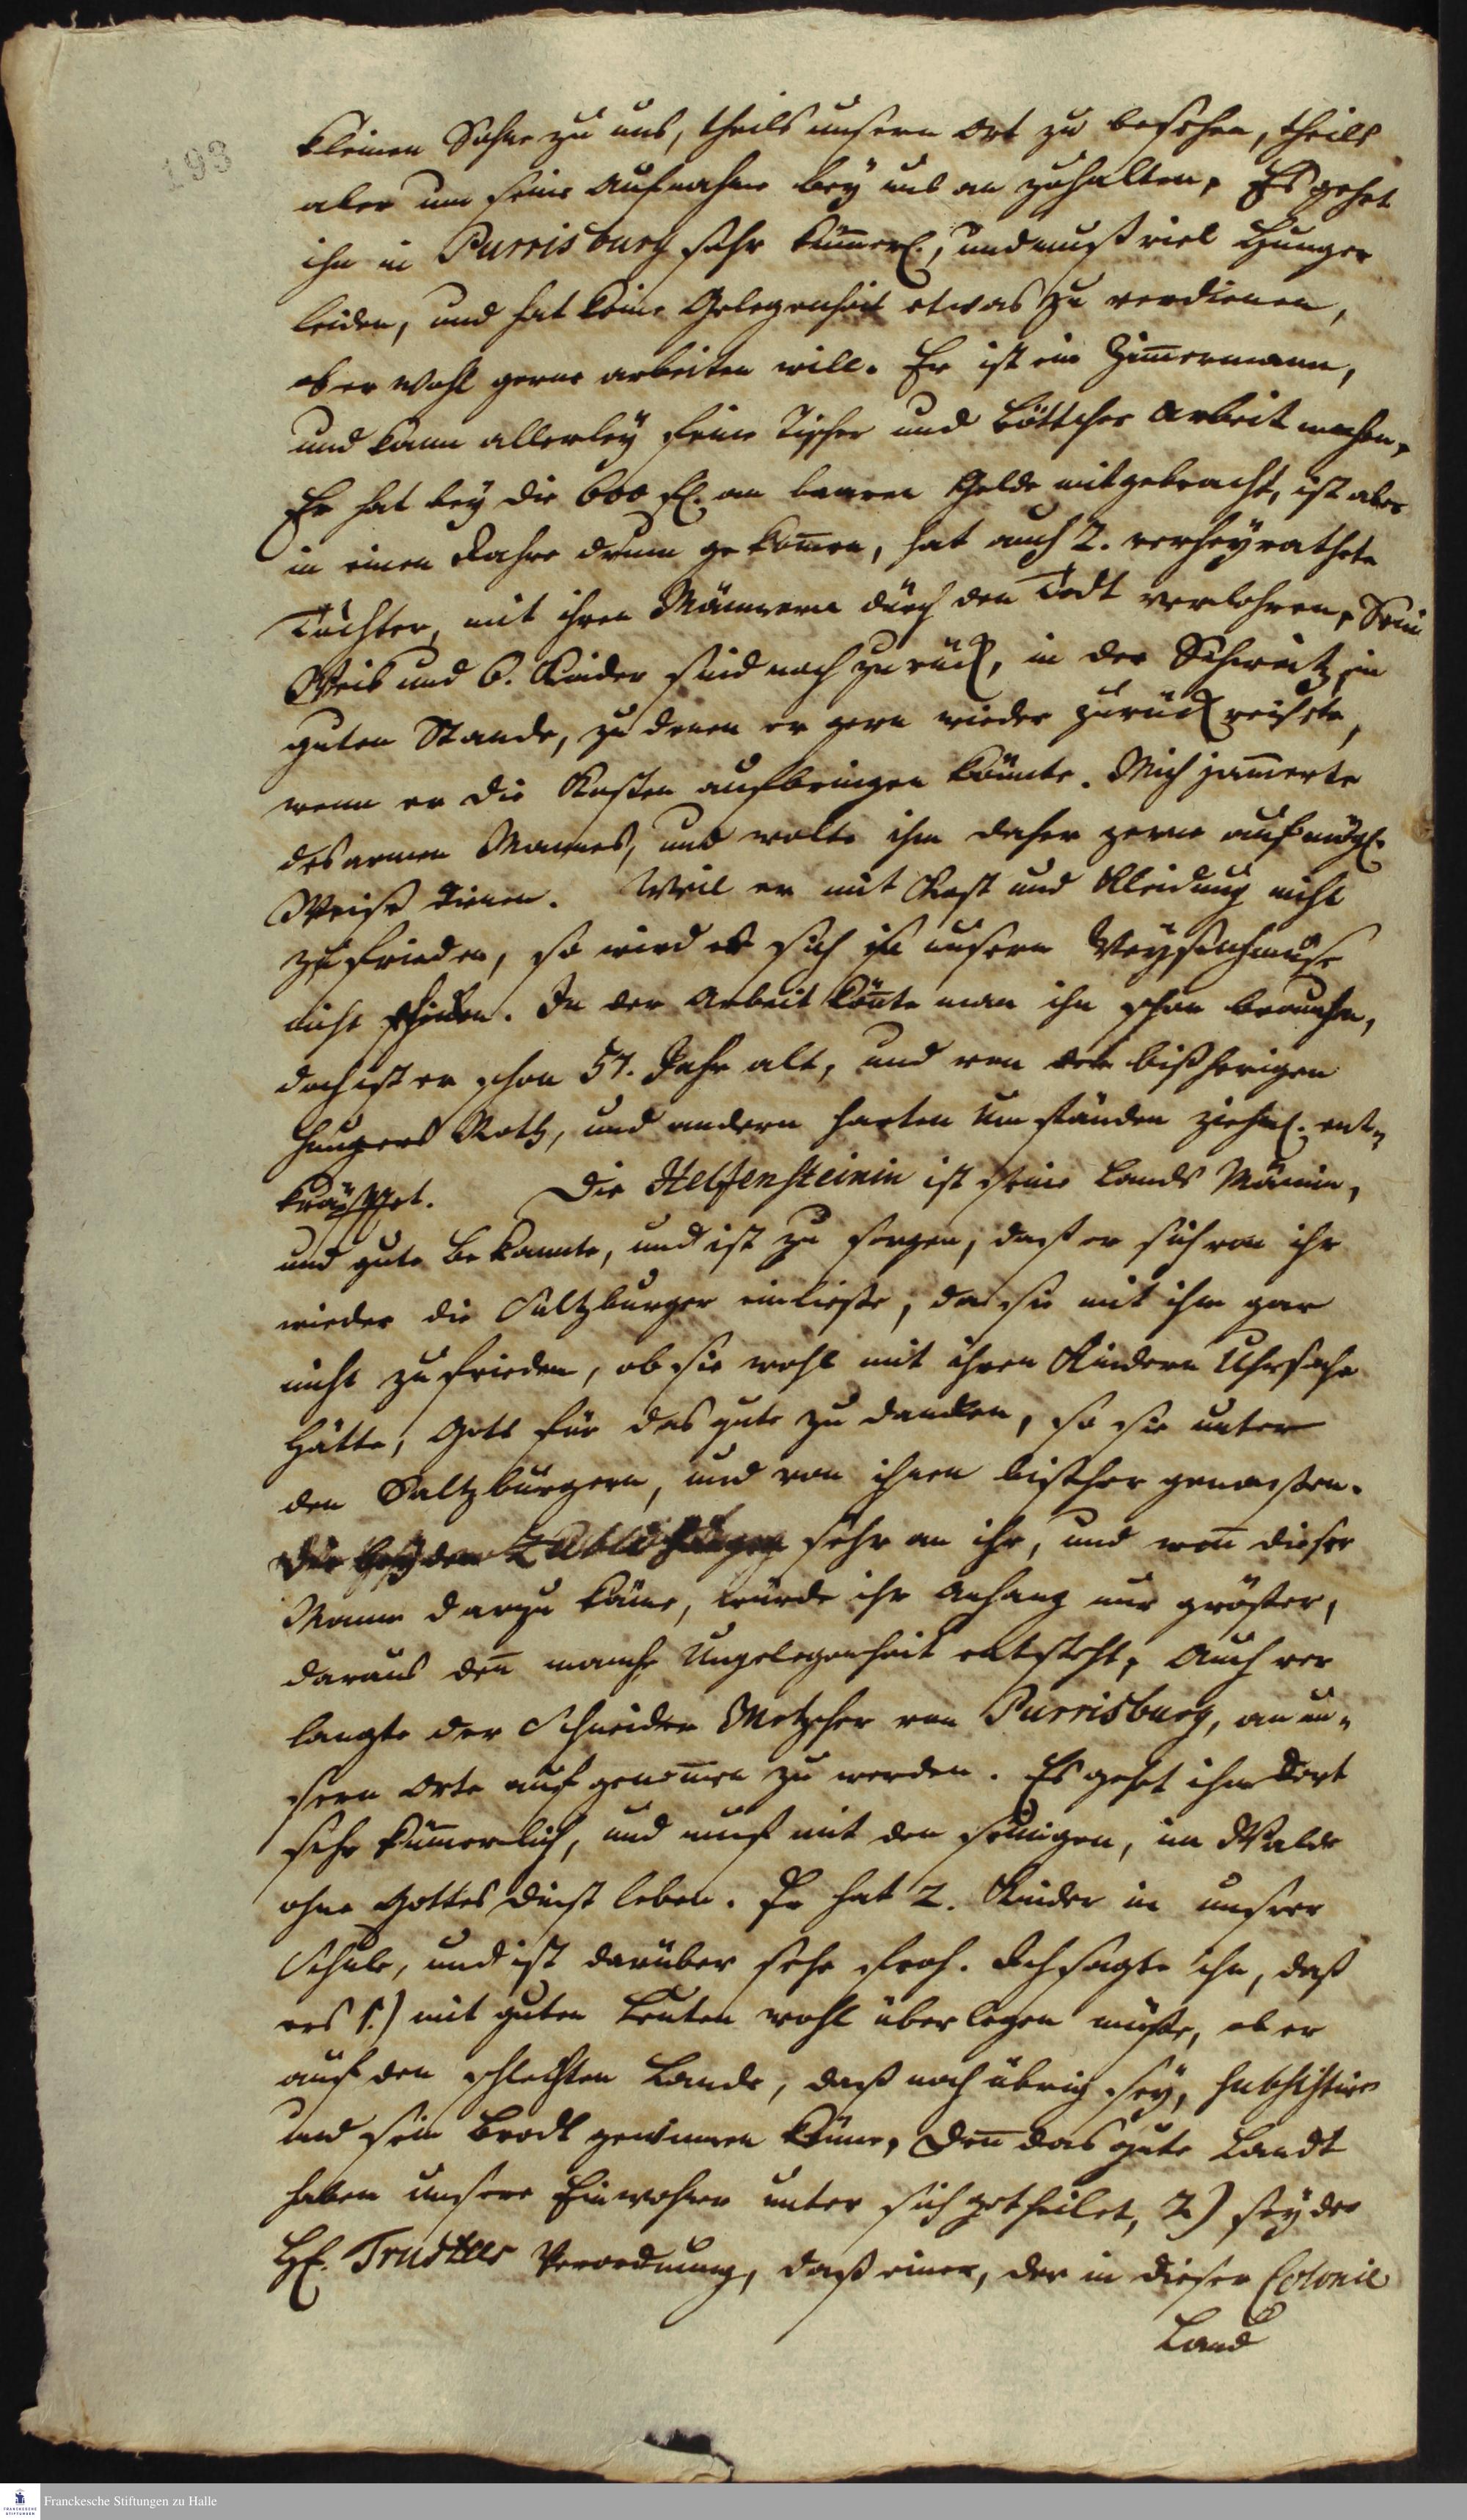 193
kleinen Sohne zu uns, theils unsern Ort zu besehen, theils
aber um seine Aufnahme bey uns an zuhalten. Es gehet
ihn in Purrisburg sehr kümerl., und muß viel Hunger
leiden, und hat keine Gelegenheit etwas zu verdienen,
ob er wohl gerne arbeiten will. Er ist ein Zim̄ermann,
und kann allerley feine Tischer und Böttcher Arbeit machen,
Er hat bey die 600 fl. an baaren Gelde mitgebracht, ist aber
in einen Jahre drum gekom̄en, hat auch 2. verheyrathete
Töchter, mit ihren Männern durch den Todt verlohren. Sein
Weib und 6. Kinder sind noch zurück, in der Schweitz, in
guten Stande, zu denen er gern wieder zurück reisete,
wenn er die Kosten aufbringen könnte. Mich jam̄erte
des armen Mannes, und wolte ihm daher gerne auf mögl.
Weise dienen. Weil er mit Kost und Kleidung nicht
zu frieden, so wird er sich in unsern Weysenhause
nicht schicken. In der Arbeit kön̄te man ihn schon brauchen,
doch ist er schon 57. Jahr alt, und von der bißherigen
Hungers Noth, und andern harten Umständen ziehml. ent-
kräfftet. Die Helfensteinin ist seine Lands Männin,
und gute Bekannte, und ist zu sorgen, daß er sich von ihr
wieder die Saltzburger einliesse, da sie mit ihm gar
nicht zu frieden, ob sie wohl mit ihren Kindern Uhrsache
hätte, Gott für das gute zu dancken, so sie unter
den Saltzburgern, und von ihnen bißher genossen.
Die beyden hängen sehr an ihr, und wen̄ dieser
Mann darzu käme, würde ihr Anhang nur grösser,
daraus den̄ manche Ungelegenheit entsteht. Auch ver
langte der Schneider Metzscher von Purrisburg, an un-
sern Orte aufgenom̄en zu werden. Es gehet ihm dort
sehr küm̄erlich, und muß mit den seinigen, im Walde
ohne Gottes dinst leben. Er hat 2. Kinder in unsrer
Schule, und ist darüber sehr froh. Ich sagte ihn, daß
ers 1.) mit guten Leuten wohl überlegen müste, ob er
auf den schlechten Lande, daß noch übrig sey, subsistiren
und sein Brodt gewinnen könne, den̄ das gute Landt
haben unsere Einwohner unter sich getheilet, 2) sey der
HE. Trustees Verordnung, daß einer, der in dieser Colonie
Land
Franckesche Stiftungen zu Halle